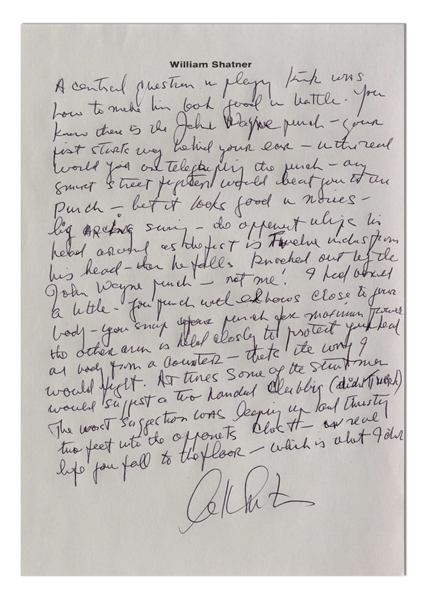 William Shatner
A central question in playing Kirk was
how to make him look good in battle. You
know there is the John Wayne punch – your
fist starts way behind your ear – in the real
world you are telegraphing the punch – any
smart street fighter would beat you to the
punch – but it looks good in movies –
big arcing swing – the opponent whips his
head around as the fist is twelve inches from
his head – then he falls knocked out by the
John Wayne punch – not me! I had boxed
a little – you punch with elbows close to your
body – you snap your punch for maximum power
the other arm is held closely to protect your head
or body from a counter – that's the way I
would fight. At times some of the stuntmen
would suggest a two handed clubbing (didn't
The worst suggestion was leaping up and thrusting
two feet into the opponents chest – in real
life you fall to the floor – which is what I did